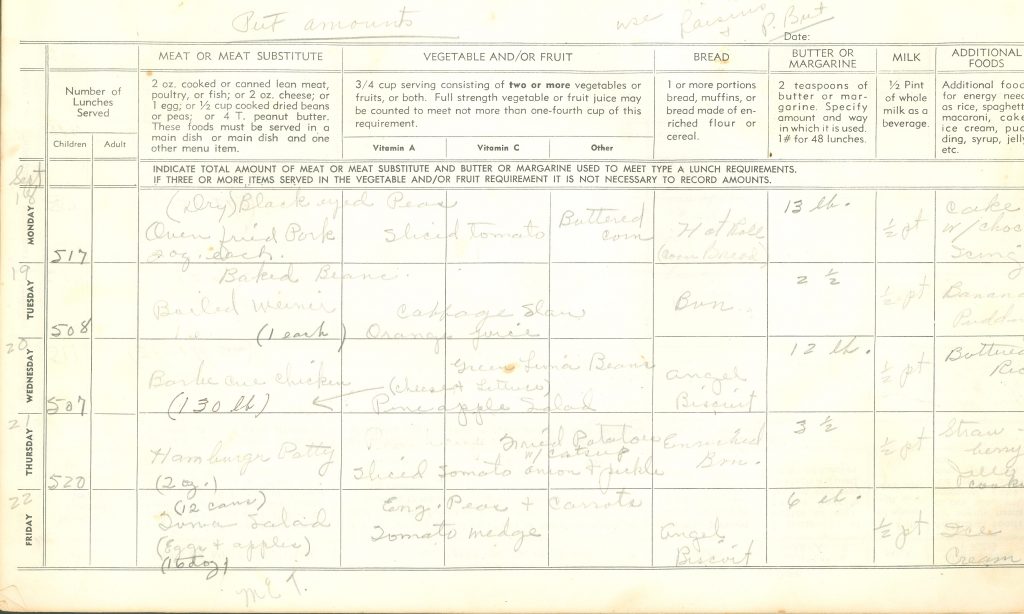 Put amounts
use Raisins
+ P. But
Date:
Number of Lunches Served
Children
Adult
MEAT OR MEAT SUBSTITUTE
2 oz. cooked or canned lean meat,
poultry, or fish; or 2 oz. cheese; or
1 egg; or ½ cup cooked dried beans
or peas; or 4 T. peanut butter.
These foods must be served in a
main dish or main dish and one
other menu item.
VEGETABLE AND/OR FRUIT
3/4 cup serving consisting of two or more vegetables or
fruits, or both. Full strength vegetable or fruit juice may
be counted to meet not more than one-fourth cup of this
requirement.
Vitamin A
Vitamin C
Other
BREAD
1 or more portions
bread, muffins, or
bread made of en-
riched flour or
cereal.
BUTTER OR
MARGARINE
2 teaspoons of
butter or mar-
garine. Specify
amount and way
in which it is used.
1# for 48 lunches.
MILK
½ Pint
of whole
milk as a
beverage.
ADDITIONAL
FOODS
Additional food
for energy need
as rice, spaghett
macaroni, cake
ice cream, pud
ding, syrup, jelly
etc.
INDICATE TOTAL AMOUNT OF MEAT OR MEAT SUBSTITUTE AND BUTTER OR MARGARINE USED TO MEET TYPE A LUNCH REQUIREMENTS.
IF THREE OR MORE ITEMS SERVED IN THE VEGETABLE AND/OR FRUIT REQUIREMENT IT IS NOT NECESSARY TO RECORD AMOUNTS.
Sept
18
MONDAY
517
(Dry) Black eyed Peas
Oven fried Pork
2 oz. each.
Sliced tomato
Buttered
corn
Hot Roll
(Corn Bread)
13 lb.
½ pt
Cake
w/ choc
Icing
19
TUESDAY
508
Baked Beans
Boiled Weiner
(1 each)
Cabbage Slaw
Orange Juice
Bun
2 ½
½ pt
Banana
Puddin
20
WEDNESDAY
507
Barbecue Chicken
(130 lb)
Green Lima Beans
(Cheese + Lettuce)
Pineapple Salad
Angel
Biscuit
12 lb.
½ pt
Buttered
Rice
21
THURSDAY
520
Hamburger Patty
(2 oz.)
Fried Potatoes
w/ catsup
Sliced Tomato onion + pickle
Enriched
Bun.
3 ½
½ pt
Straw-
berry
Jelly
Cookie
22
FRIDAY
(12 cans)
Tuna Salad
(Eggs + apples)
(16 doz)
Eng. Peas + Carrots
Tomato wedge
Angel
Biscuit
6 lb.
½ pt
Ice
Cream